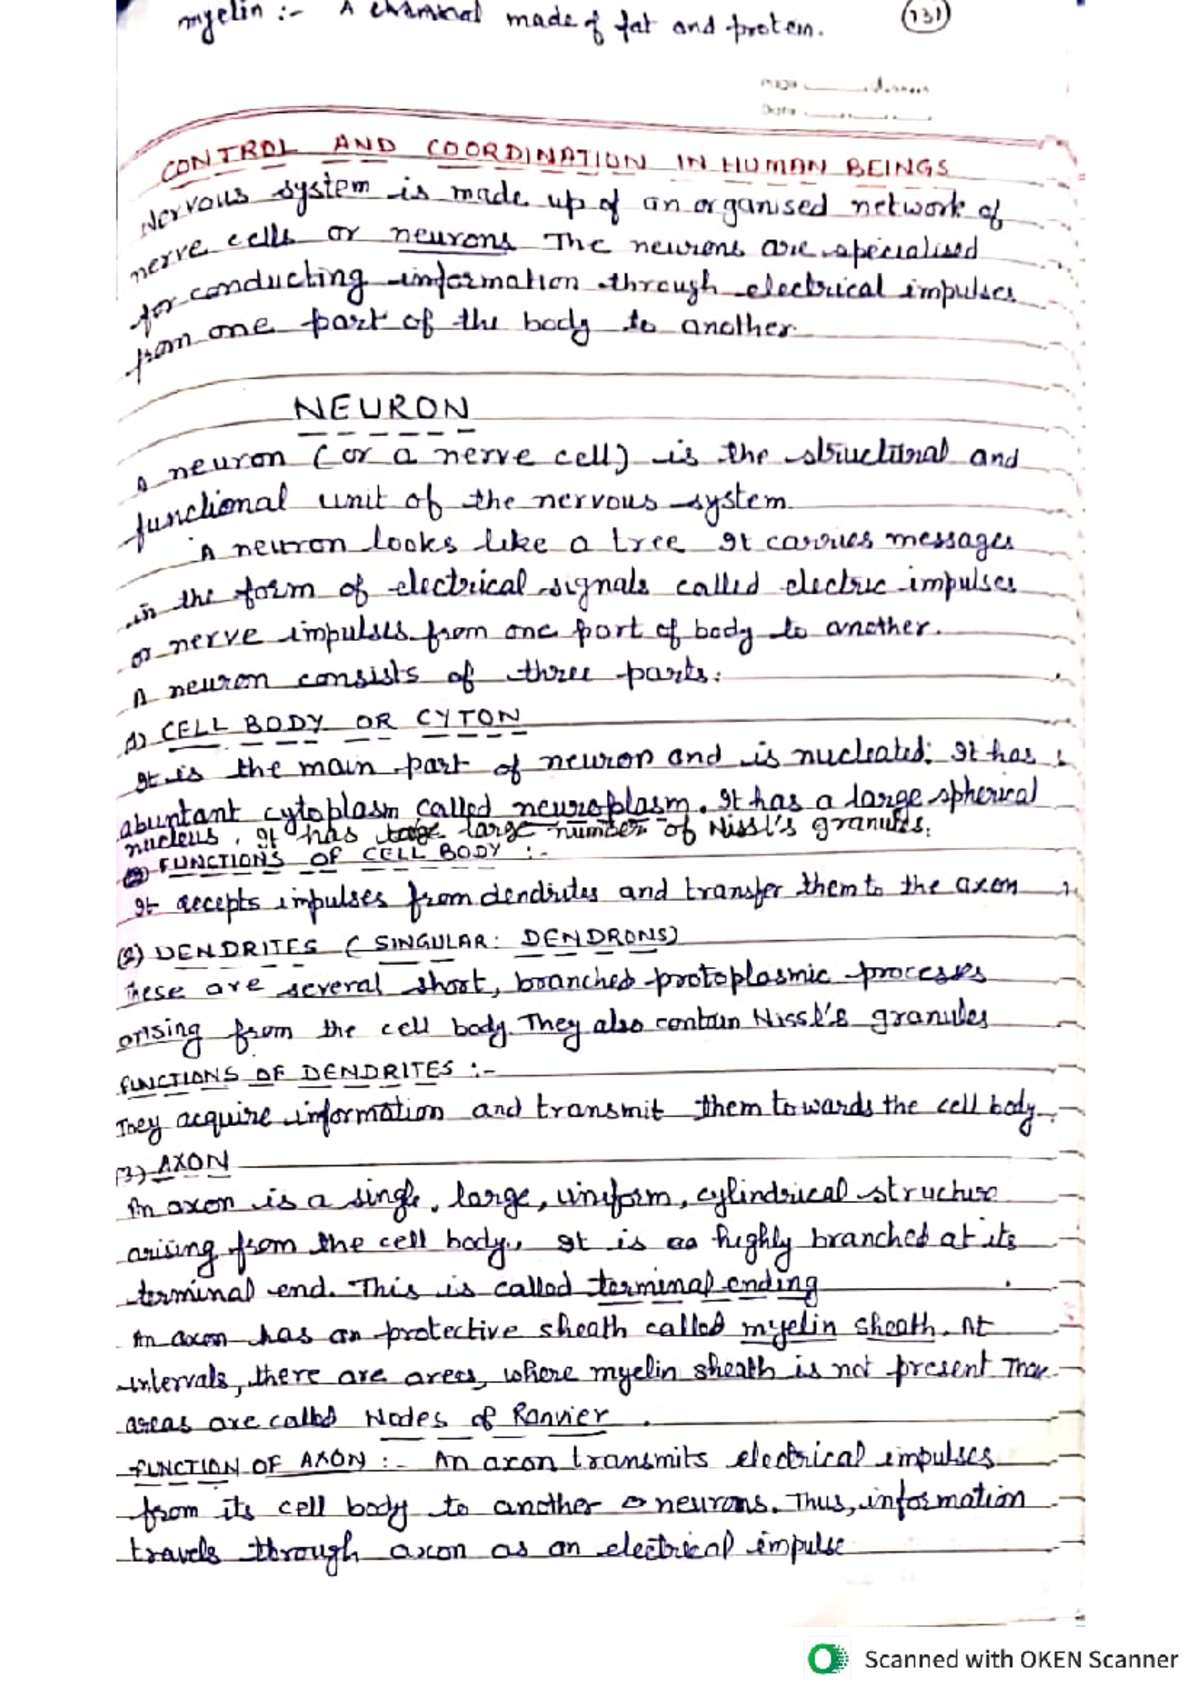 myelin :- A chemical made of fat and protein.
131
Page
Date
CONTROL AND COORDINATION IN HUMAN BEINGS
Nervous system is made up of an organised network of
nerve cells or neurons The neurons are specialised
for conducting information through electrical impulses
from one part of the body to another.
NEURON
A neuron (or a nerve cell) is the structural and
functional unit of the nervous system.
A neuron looks like a tree It carries messages
in the form of electrical signals called electric impulses
or nerve impulses from one part of body to another.
A neuron consists of three parts:
(1) CELL BODY OR CYTON
It is the main part of neuron and is nucleated. It has
abuntant cytoplasm called neuroplasm. It has a large spherical
nucleus. It has large number of Nissl's granules.
FUNCTIONS OF CELL BODY :-
It accepts impulses from dendrites and transfer them to the axon
(2) DENDRITES (SINGULAR: DENDRONS)
These are several short, branched protoplasmic processes
arising from the cell body. They also contain Nissl's granules
FUNCTIONS OF DENDRITES :-
They acquire information and transmit them towards the cell body.
(3) AXON
An axon is a single, large, uniform, cylindrical structure
arising from the cell body. It is highly branched at its
terminal end. This is called terminal ending
An axon has an protective sheath called myelin sheath. At
intervals, there are areas, where myelin sheath is not present
areas are called Nodes of Ranvier.
FUNCTION OF AXON :- An axon transmits electrical impulses
from its cell body to another neurons. Thus, information
travels through axon as an electrical impulse
Scanned with OKEN Scanner